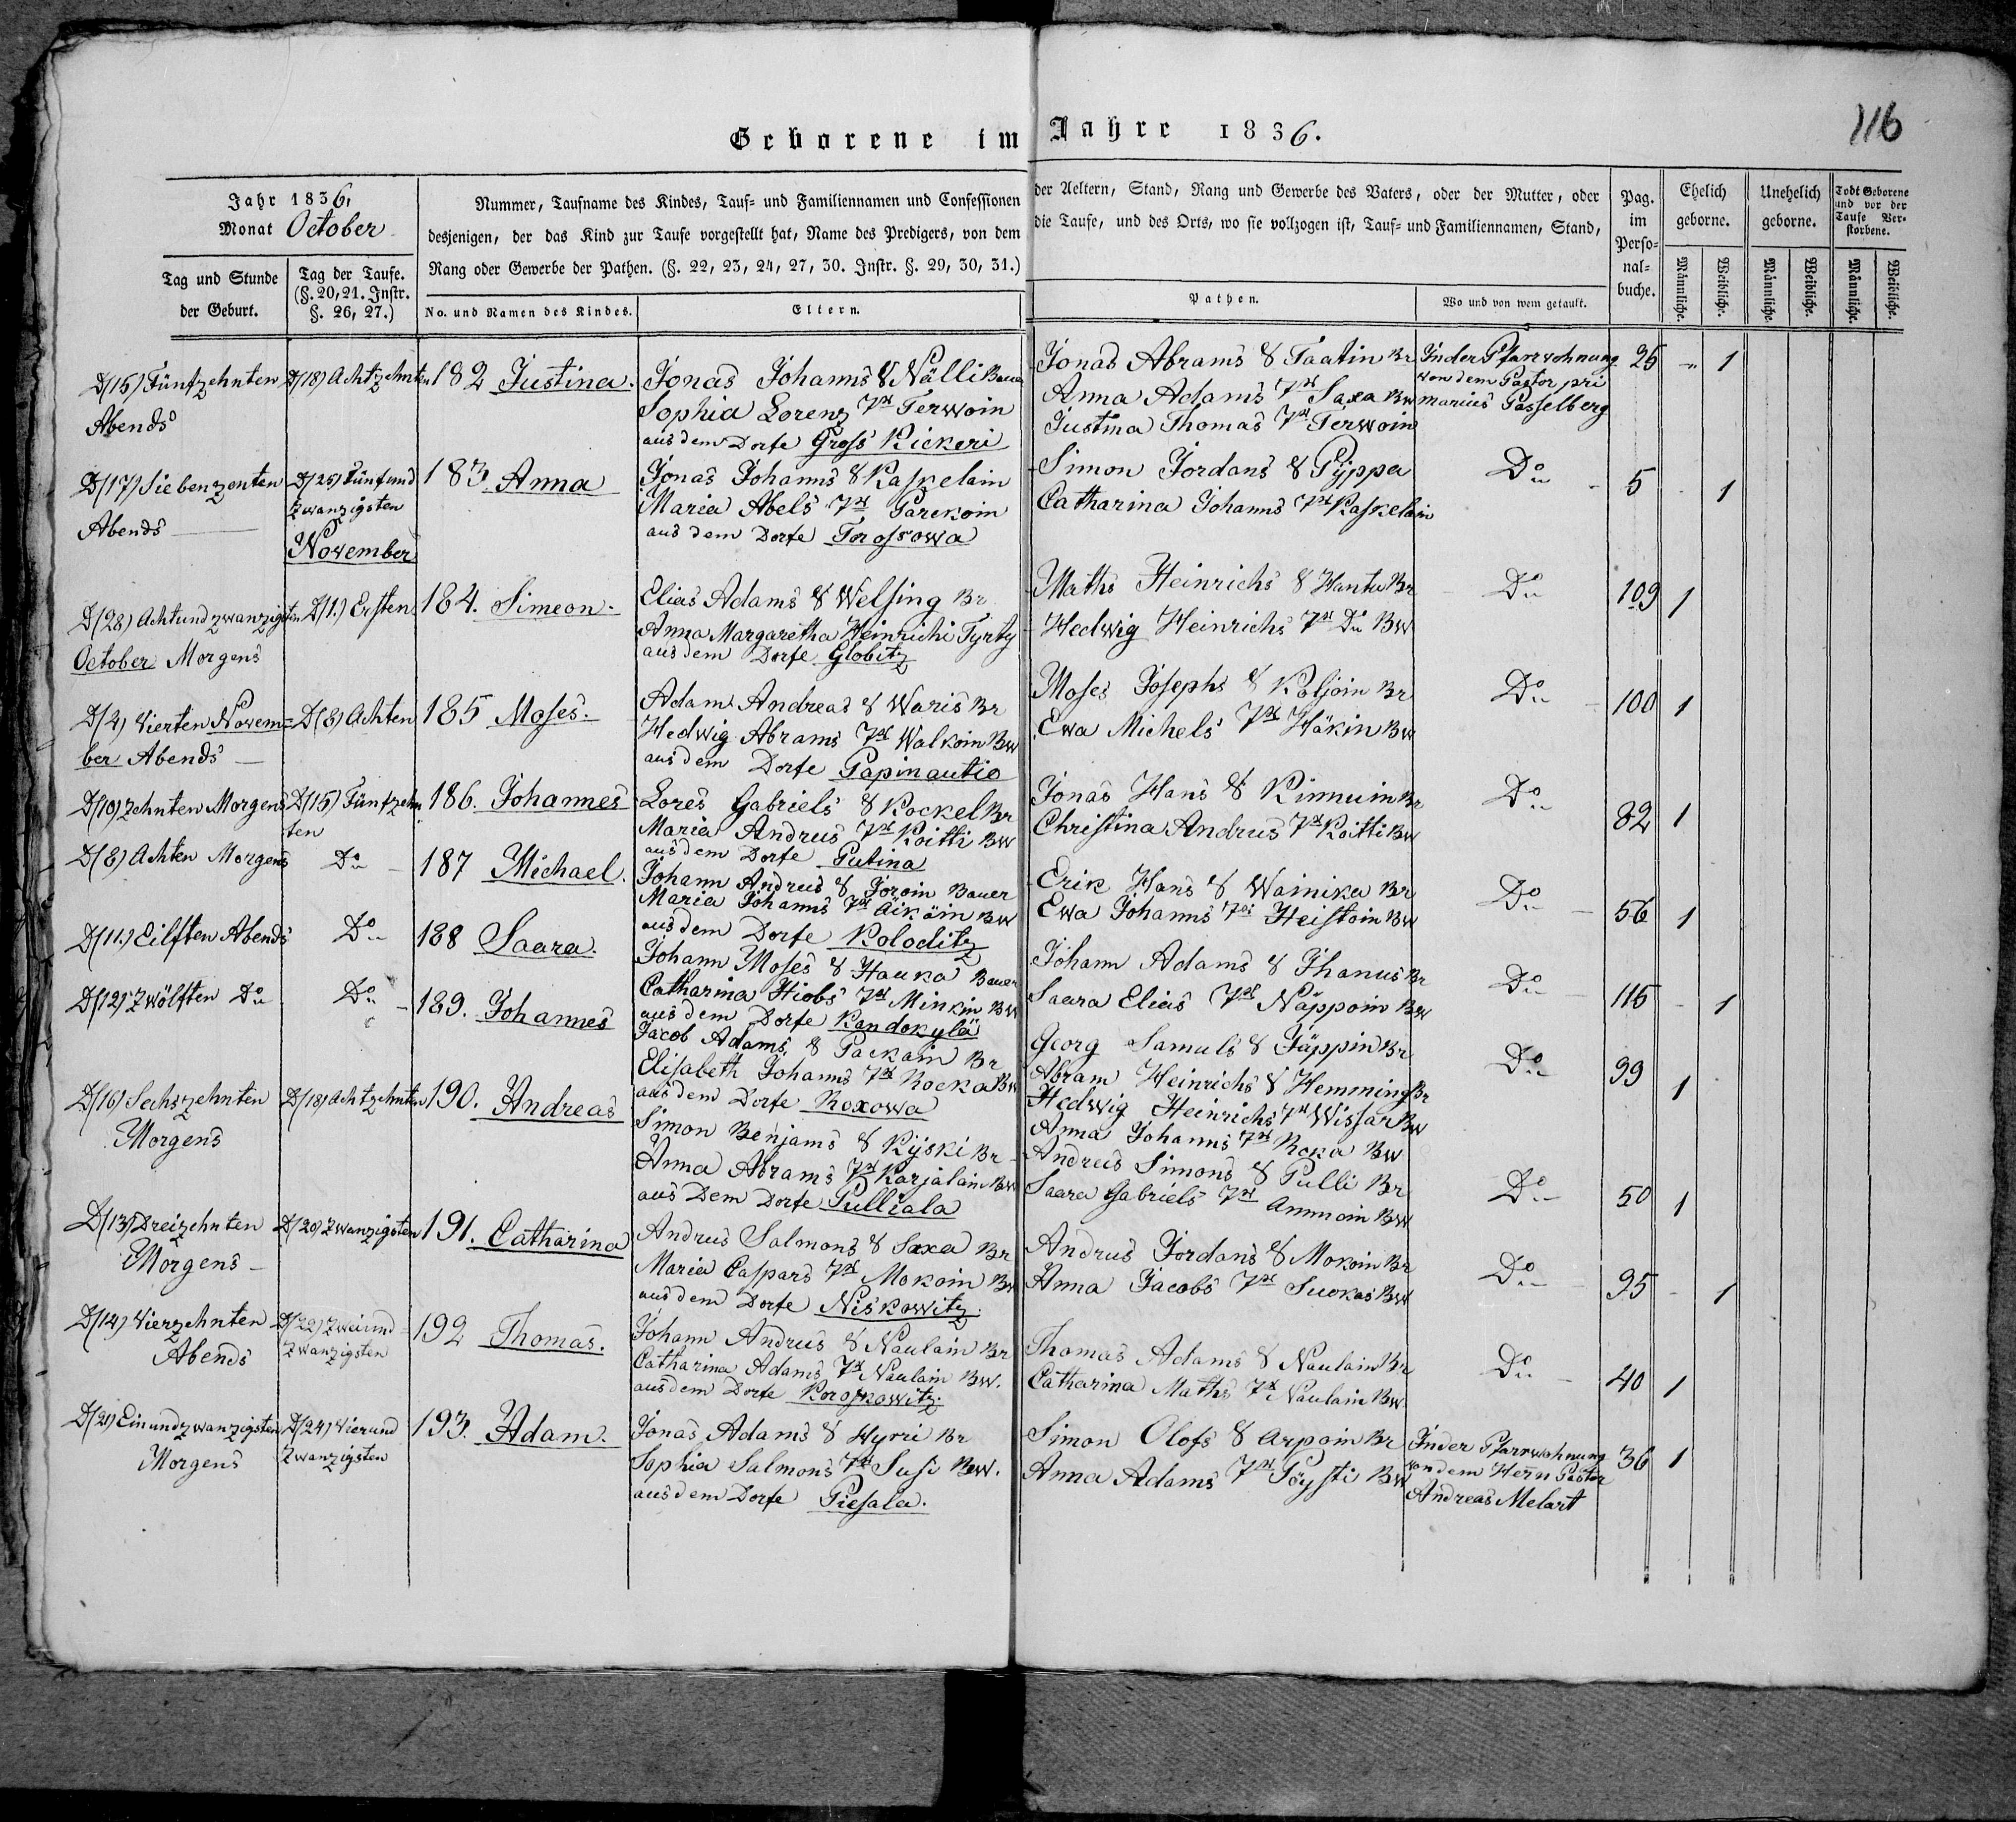 116
Geborene im Jahre 1836.
Jahr 1836,
Monat October
Tag und Stunde der Geburt.
Tag der Taufe. (§. 20, 21. Instr. §. 26, 27.)
Nummer, Taufname des Kindes, Tauf- und Familiennamen und Confessionen der Aeltern, Stand, Rang und Gewerbe des Vaters, oder der Mutter, oder
desjenigen, der das Kind zur Taufe vorgestellt hat, Name des Predigers, von dem die Taufe, und des Orts, wo sie vollzogen ist, Tauf- und Familiennamen, Stand,
Rang oder Gewerbe der Pathen. (§. 22, 23, 24, 27, 30. Instr. §. 29, 30, 31.)
No. und Namen des Kindes.
Eltern.
Pathen.
Wo und von wem getauft.
Pag. im Perso-nal-buche.
Ehelich geborne.
Unehelich geborne.
Todt Geborene und vor der Taufe Ver-storbene.
Männliche. Weibliche. Männliche. Weibliche. Männliche. Weibliche.
D(15) Fünfzehnten Abends
D(18) Achtzehnten
182 Justina.
Jonas Johanns & Nälli Bauer
Sophia Lorenz 7st Terwoin
aus dem Dorfe Gross Kickeri
Jonas Abrams & Taatin Br
Anna Adams 7st Saxa BW
Justina Thomas 7st Terwoin
In der Pfarrwohnung
von dem Pastor pri
marius Passelberg
25 - 1
D(17) Siebenzenten Abends
D(25) Fünfund
zwanzigsten
November
183 Anna
Jonas Johanns & Kaskelain
Maria Abels 7st Parekoin
aus dem Dorfe Torossowa
Simon Jordans & Pyppa
Catharina Johanns 7st Kaskelain
Do
5 - 1
D(28) Achtundzwanzigsten
October Morgens
D(1.) Ersten
184. Simeon.
Elias Adams & Welling Br
Anna Margaretha Heinrichi Tyrty
aus dem Dorfe Globitz
Maths Heinrichs & Hantu Br
Hedwig Heinrichs 7st Do BW
Do
109 1
D(4) Vierten Novem=
ber Abends
D(8) Achten
185 Moses.
Adam Andreas & Waris Br
Hedwig Abrams 7st Walkoin BW
aus dem Dorfe Papinautio
Moses Josephs & Koljoin Br
Ewa Michels 7st Häkin BW
Do
100 1
D(10) Zehnten Morgens
D(15) Fünfzehn
ten
186. Johannes
Lores Gabriels & Kockel Br
Maria Andrus 7st Koitti BW
aus dem Dorfe Putina
Jonas Hans & Kinnuin Br
Christina Andrus 7st Koitti BW
Do
82 1
D(8) Achten Morgens
Do
187 Michael.
Johann Andrus & Joroin Bauer
Maria Johanns 7st Äikäin BW
aus dem Dorfe Koloditz
Erik Hans & Wainika Br
Ewa Johanns 7st Heistoin BW
Do
56 1
D(11.) Eilften Abends
Do
188 Saara.
Johann Moses & Hauka Bauer
Catharina Hiobs 7st Minkin BW
aus dem Dorfe Kandokylä
Johann Adams & Ihanus Br
Saara Elias 7st Näppoin BW
Do
115 - 1
D(12) Zwölften Do
Do
189. Johannes
Jacob Adams & Packain Br
Elisabeth Johanns 7st Rocka BW
aus dem Dorfe Roxowa
Georg Samuls & Jäppin Br
Abram Heinrichs & Hemming Br
Hedwig Heinrichs 7st Wissar BW
Anna Johanns 7st Roka BW
Do
99 1
D(16) Sechszehnten
Morgens
D(18) Achtzehnten
190. Andreas
Simon Benjams & Kyski Br
Anna Abrams 7st Karjalain BW
aus Dem Dorfe Pulliala
Andreis Simons & Pulli Br
Saara Gabriels 7st Ammoin BW
Do
50 1
D(13) Dreizehnten
Morgens
D(20) Zwanzigsten
191. Catharina
Andrus Salmons & Saxa Br
Maria Caspars 7st Mokoin BW
aus dem Dorfe Niskowitz.
Andrus Jordans & Mokoin Br
Anna Jacobs 7st Suokas BW
Do
95 - 1
D(14) Vierzehnten
Abends
D(22) Zweiund
zwanzigsten
192 Thomas.
Johann Andrus & Naulain Br
Catharina Adams 7st Naulain BW.
aus dem Dorfe Koroskowitz.
Thomas Adams & Naulain Br
Catharina Maths 7st Naulain BW
Do
40 1
D(21) Einundzwanzigsten
Morgens
D(24) Vierund
zwanzigsten
193. Adam.
Jonas Adams & Hyrri Br
Sophia Salmons 7st Susi BW.
aus dem Dorfe Piesala.
Simon Olofs & Arpoin Br
Anna Adams 7st Pöysti BW
In der Pfarrwohnung
von dem Herrn Pastor
Andreas Melart
36 1